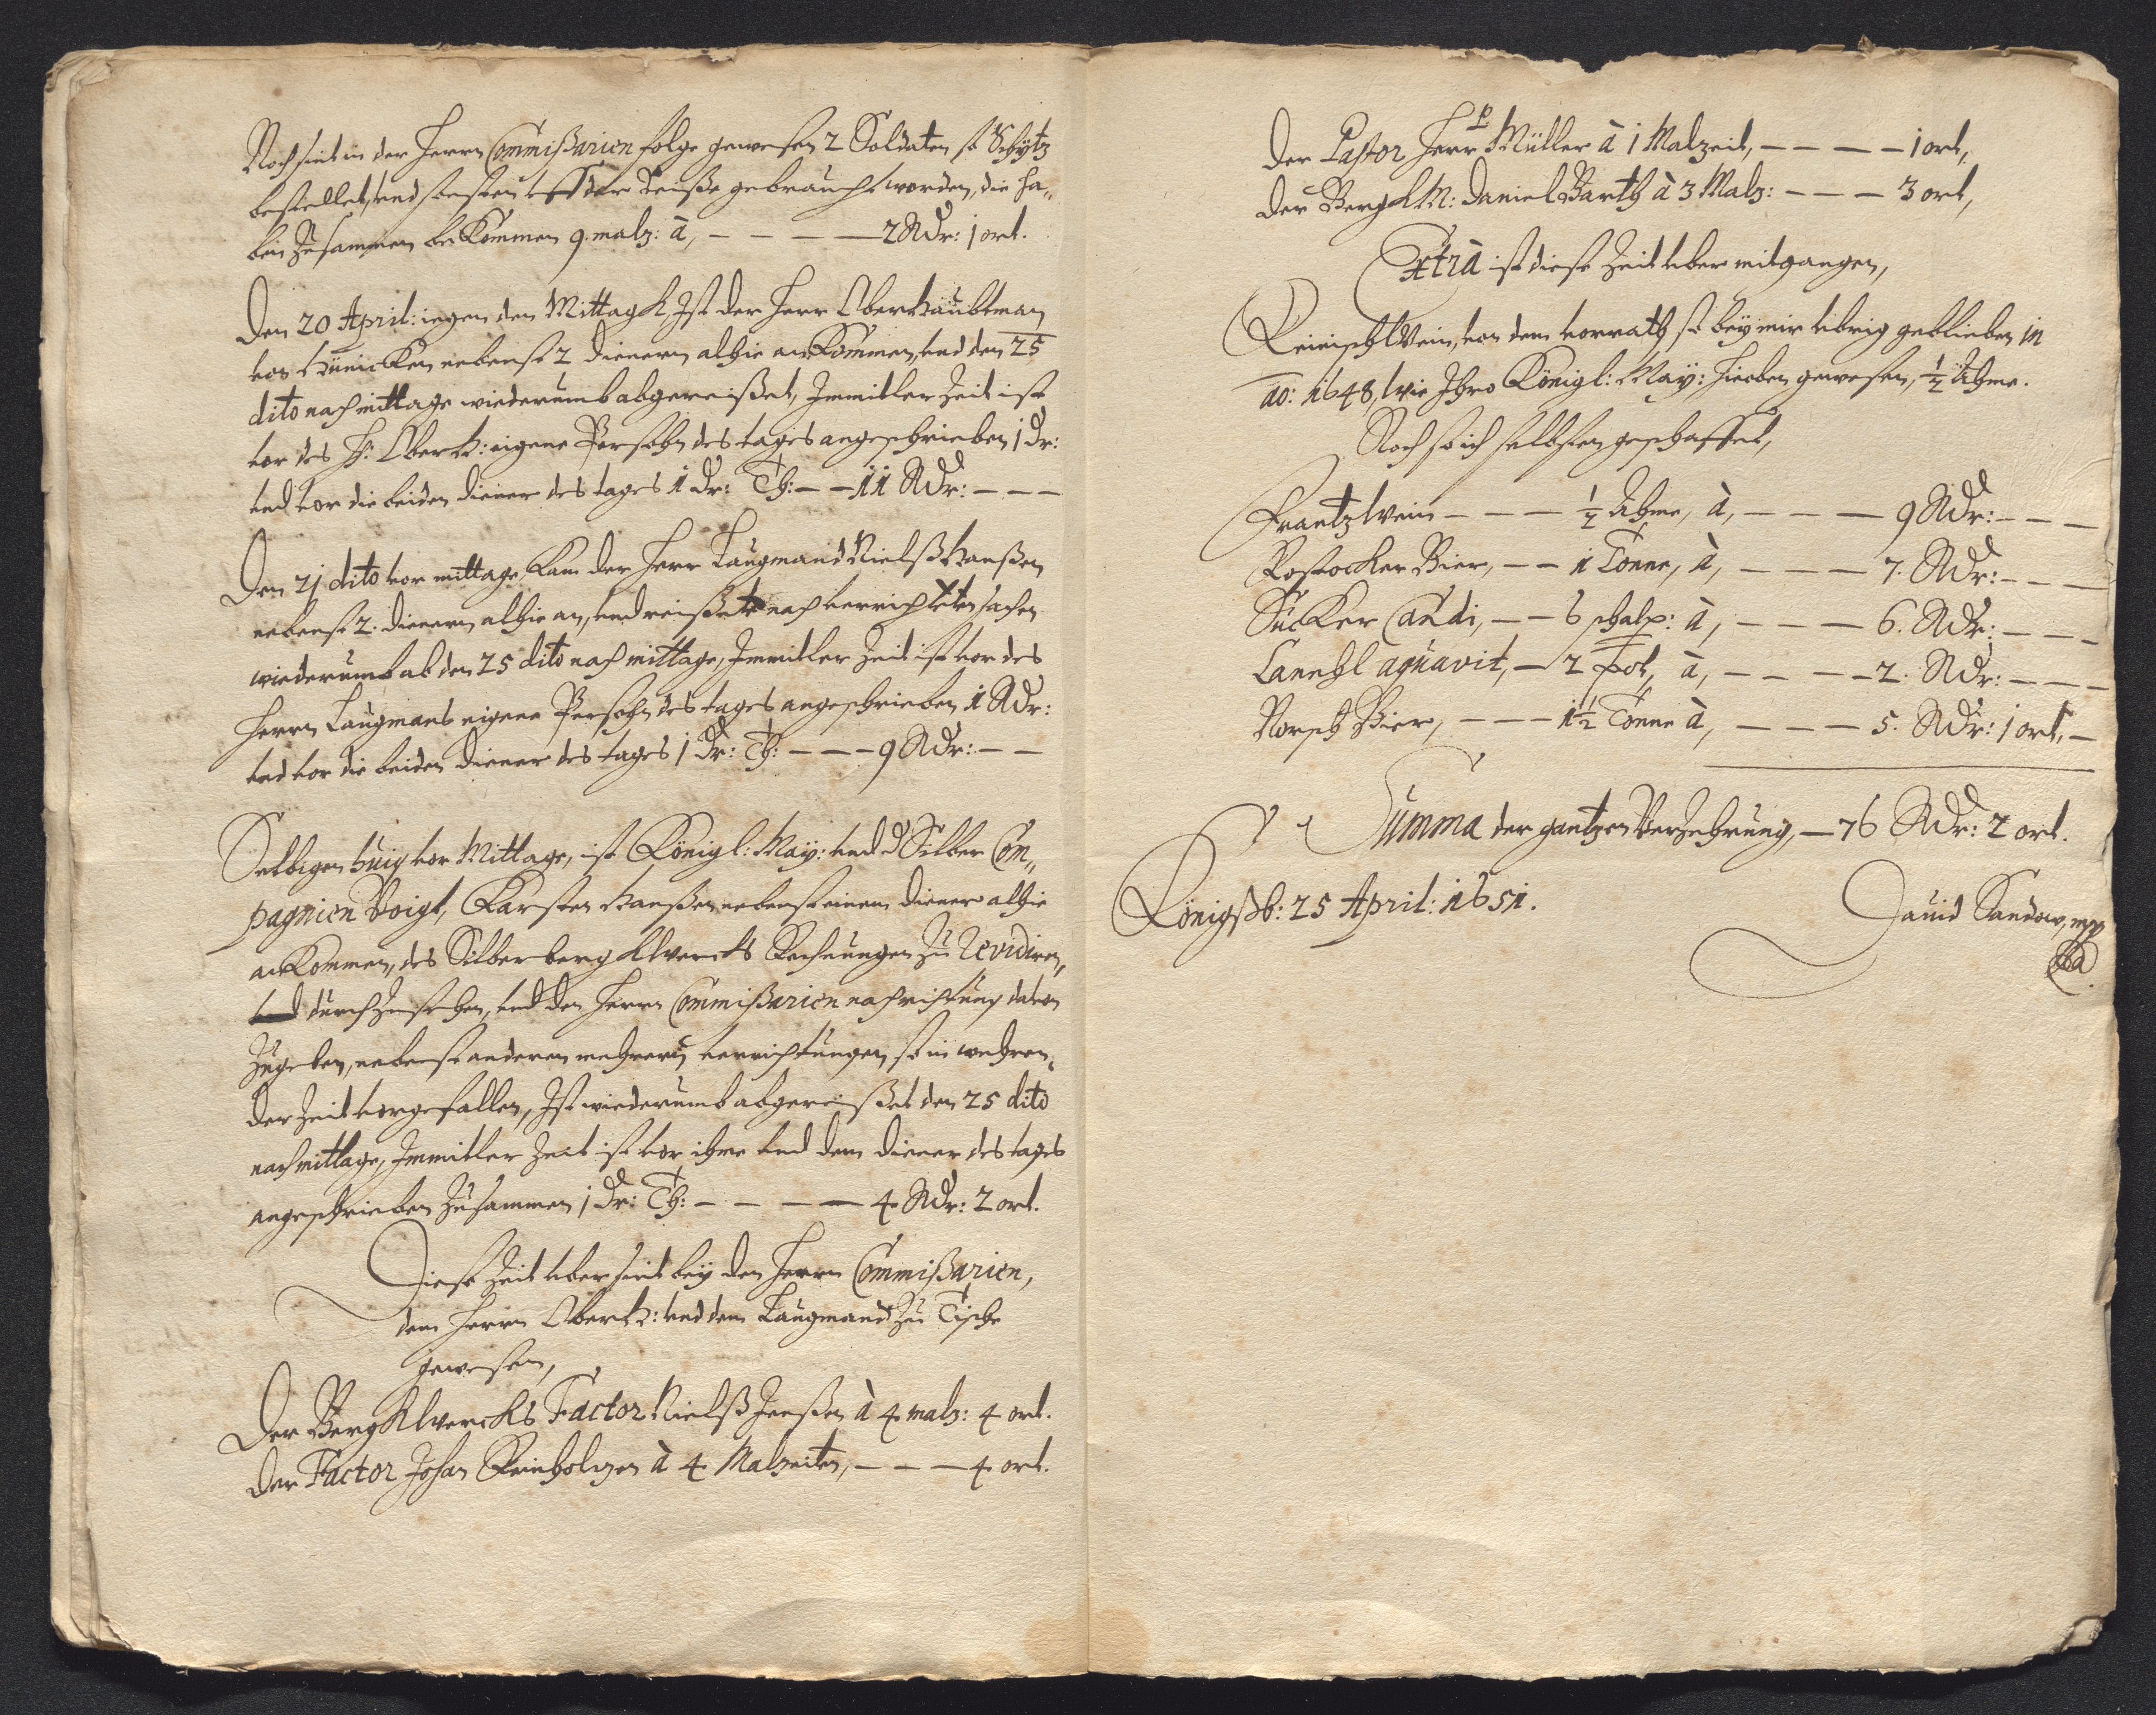 Noch sint in der Herrn Commißarien folge gewesen 2 Soldaten so Schytz
bestellet, und sonsten uff der Reiße gebraucht worden, die ha„
ben Zusammen bekommen 9. malz: à, – – – – 2 Rdr: 1 ort.
Den 20 April: iegen den Mittagk, Ist der Herr Oberhaubtman
vos Hünicken nebenst 2 dienern alhie anKommen, und den 25
dito nachmittage wiederumb abgereißet, Immitler Zeit ist
vor des H: Oberh: eigene Persohn des tages angeschrieben 1 Dr:
und vor die beiden diener des tages 1 Dr: Th: – – 11 Rdr: – – –
Den 21 dito vor mittage, Kam der Herr Laugmand Nielß Hanßen
nebenst 2. dienern alhie an, und reißete nach verrichteten sachen
wiederumb ab den 25 dito nach mittage, Immitler Zeit ist vor des
Herrn Laugmans eigene Persohn des tages angeschrieben 1 Rdr:
und vor die beiden diener des tages 1 Dr: Th: – – – 9 Rdr: – –
Selbigen vor Mittage, ist Königl: May: und d Silber Com„
pagnien Voigt, Karsten Hanßen nebenst einem diener alhie
anKommen, des Silberbergkwercks Rechnungen Zu Revidiren,
und durchzusehen, und den Herrn Commißarien nachrichtung davon
Zugeben, nebenst anderen mehreren verrichtungen, so in wehren„
der Zeit vorgefallen, Ist wiederumb abgereißet den 25 dito
nachmittage, Immitler Zeit ist vor ihme und dem diener des tages
angeschrieben Zusammen 1 Dr: Th: – – – – 4 Rdr: 2 ort.
Diese Zeit über sint bey den Herrn Commißarien,
dem Herrn Oberh: und dem Laugmand Zu Tische
gewesen,
Der Bergkwercks Factor Nielß Jenßen à 4 malz: 4 ort.
Der Factor Johan Reinholzen à 4 Malzeiten, – – – 4 ort.
Der Pastor Herr P Müller à 1 Malzeit, – – – – 1 ort,
Der BergkM: Daniel Barth à 3 Malz: – – – 3 ort,
Extra ist diese Zeit über mitgangen,
Reinisch Wein, von dem vorrath so bey mir ubrig geblieben in
ao: 1648, wie Ihro Königl: May: hieoben gewesen, ½ Ahme.
Noch so ich selbsten geschaffet,
Frantzwein – – – ½ Ahme, à, – – – 9 Rdr: – – –
Rostocker Bier, – – 1 Tonne, à, – – – 7. Rdr: – – –
Sucker Candi, – – 6 à, – – – 6. Rdr: – – –
Canehl aquavit, – 2 pot, à, – – – – 2. Rdr: – – –
Norsch Bier, – – – 1½ Tonne à, – – – 5. Rdr: 1 ort, –
Summa der gantzen Verzehrung, – 76 Rdr: 2 ort.
Königßb: 25 April: 1651.
Dauid Sandow, mpp